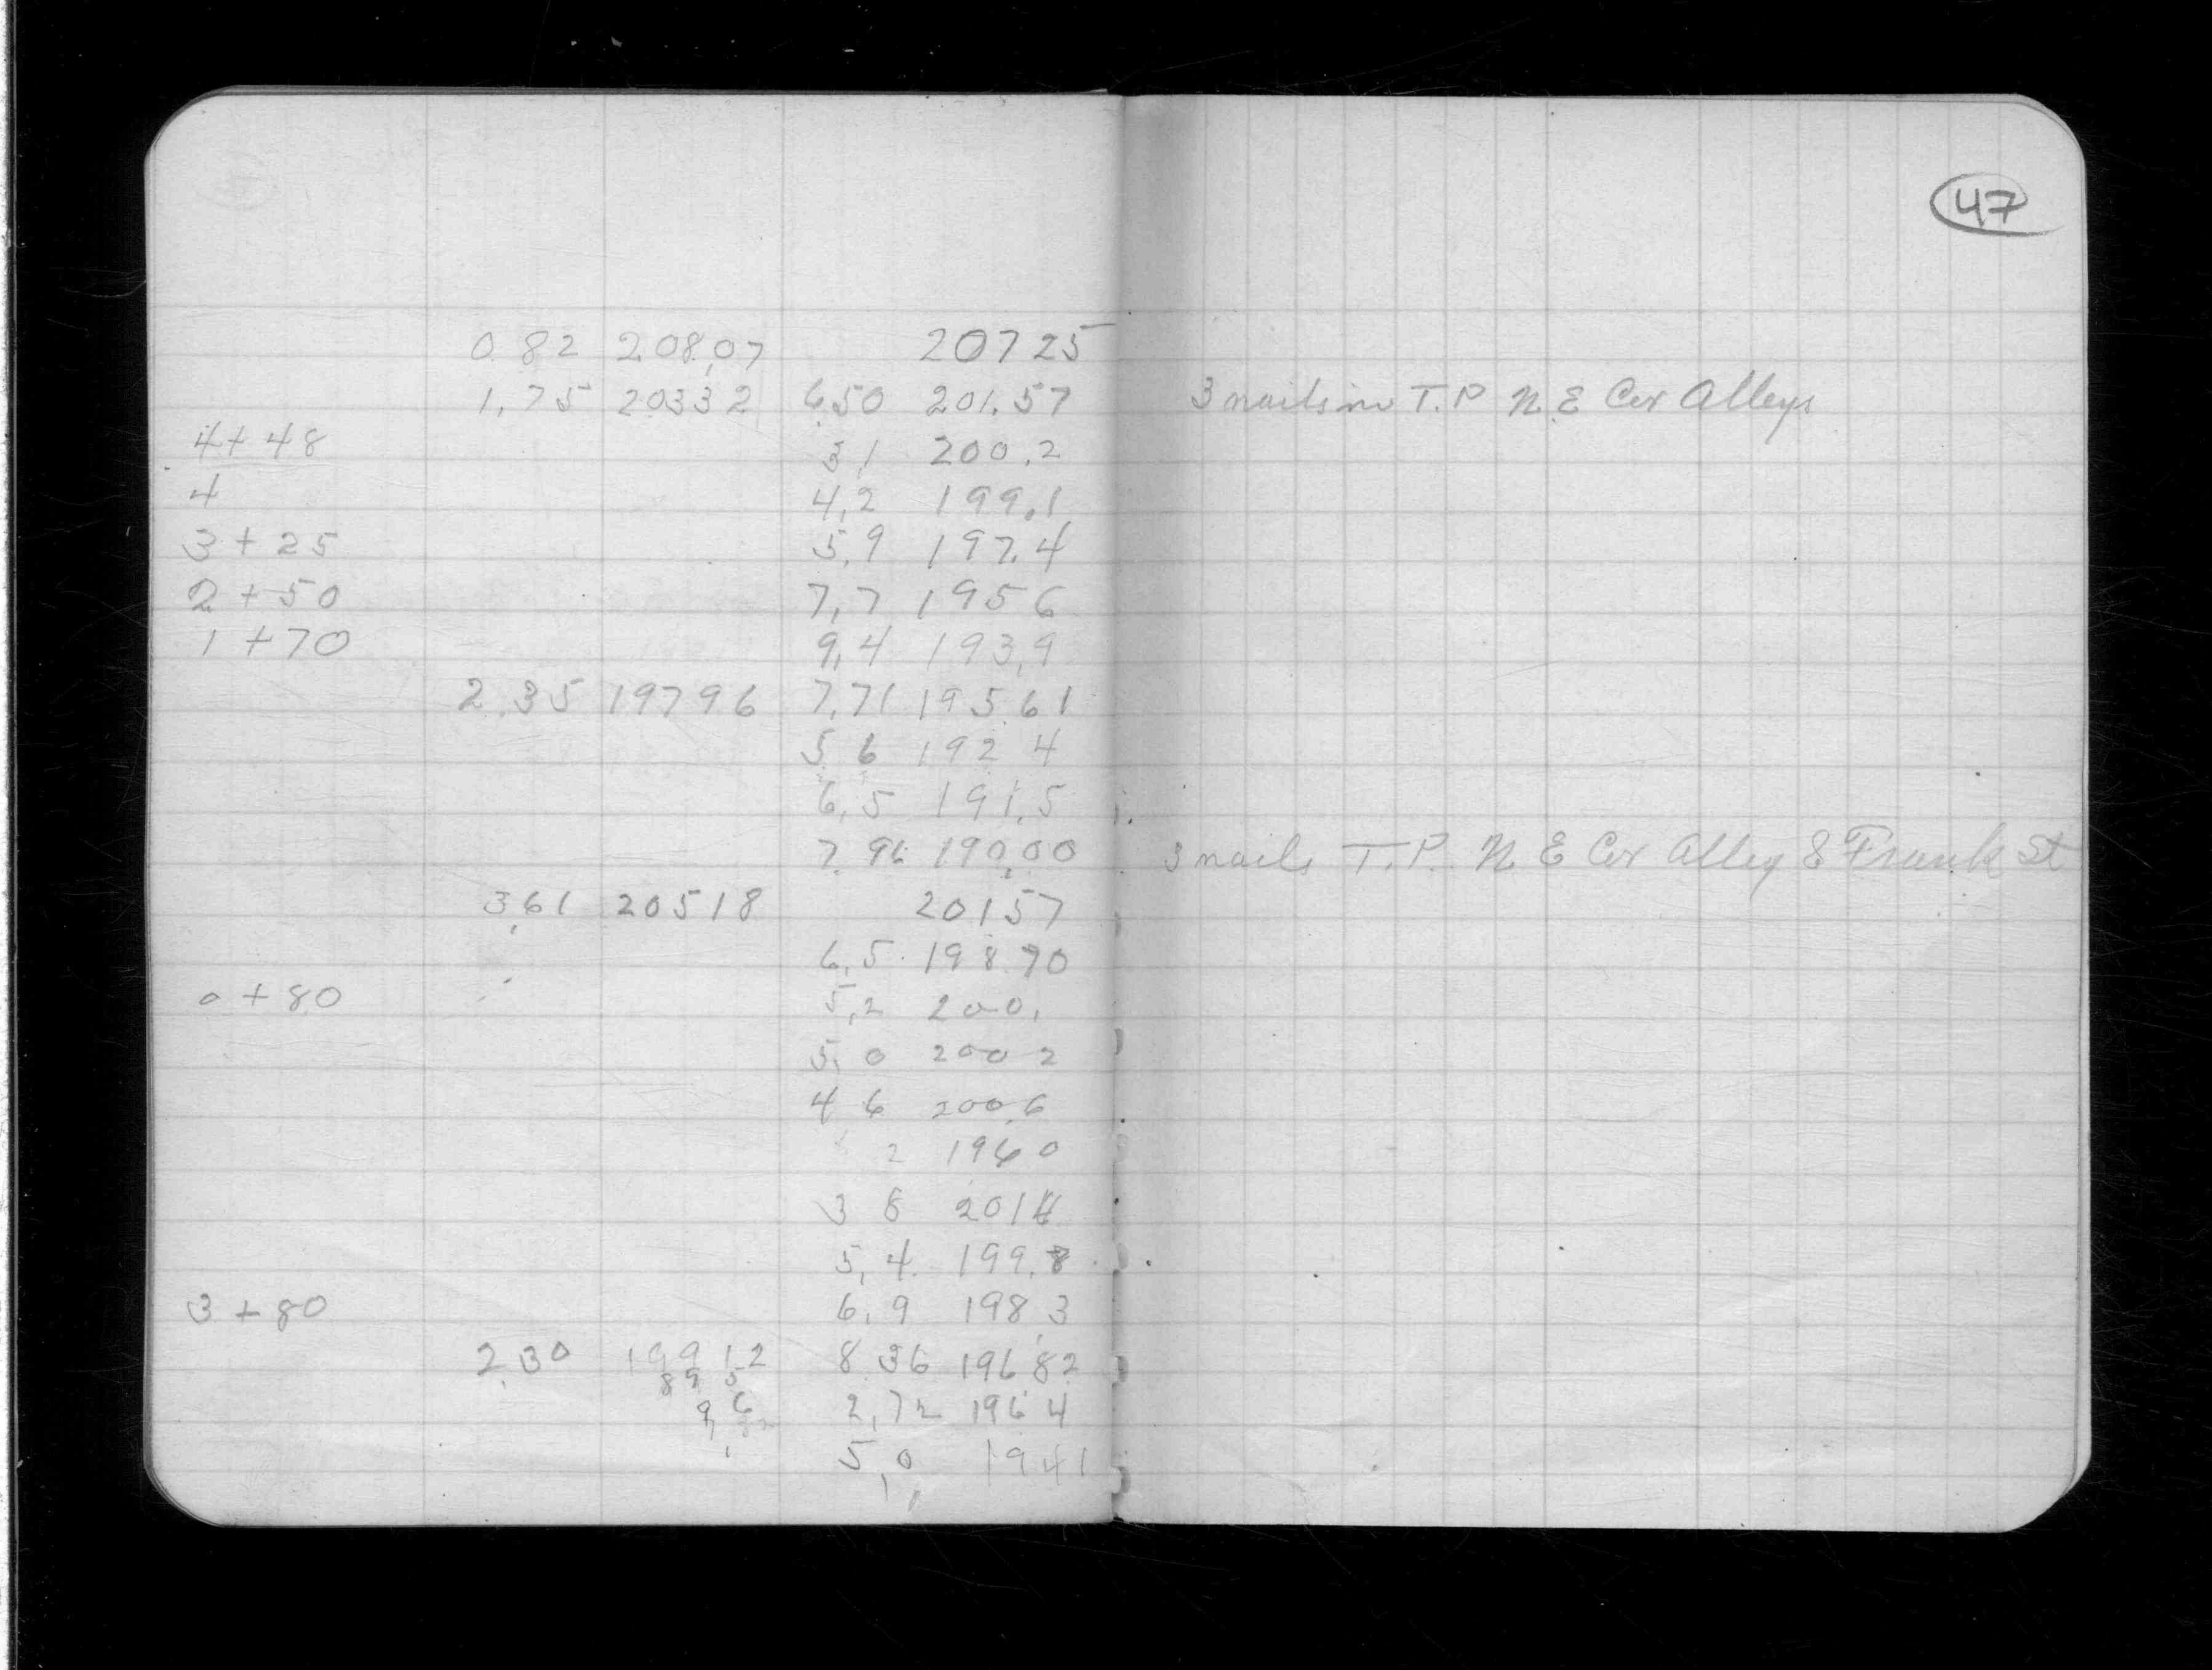 47
0.82 208.07 20725
1.75 20332 6.50 201.57 3 nails in T.P. N.E Cor Alleys
4+48 3.1 200.2
4 4.2 199.1
3+25 5.9 197.4
2+50 7.7 195 6
1+70 9.4 193.9
2.35 19796 7.71 195.61
5 6 192 4
6.5 191.5
7.96 190.00 3 nails T.P. N E Cor Alley & Frank St
3.61 20518 20157
6.5 198.70
0+80 5.2 200.
5.0 200 2
4 6 200.6
2 196 0
3 8 201 4
5.4 199.8
3+80 6.9 198.3
2.30 199 12 8.36 196.82
89 5
9 6 2.72 196.4
5.0 194 1